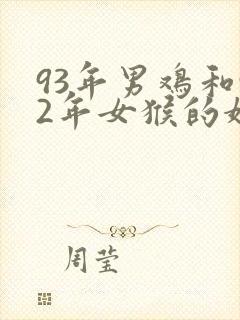 93年男鸡和
2年女猴的
周莹